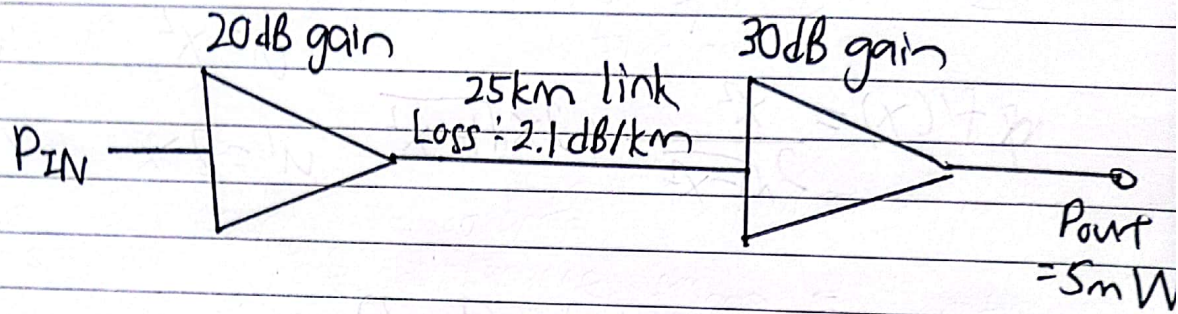 20dB gain
30dB gain
25km link
Loss: 2.1dB/km
PIN
Pout
=5mW